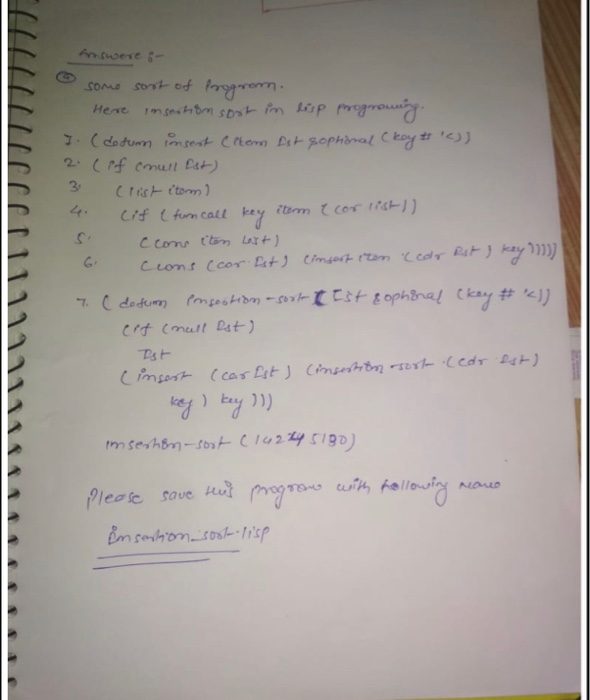 Answere :-
(a) some sort of program.
Here insertion sort in lisp programing.
1. (defun insert (item lst &optional (key #'<))
2. (if (null lst)
3. (list item)
4. (if (funcall key item (car list))
5. (cons item lst)
6. (cons (car lst) (insert item (cdr lst) key)))))
7. (defun insertion-sort (lst &optional (key #'<))
(if (null lst)
lst
(insert (car lst) (insertion-sort (cdr lst)
key) key)))
insertion-sort (142 45190)
Please save this program with following name
insertion_sort.lisp